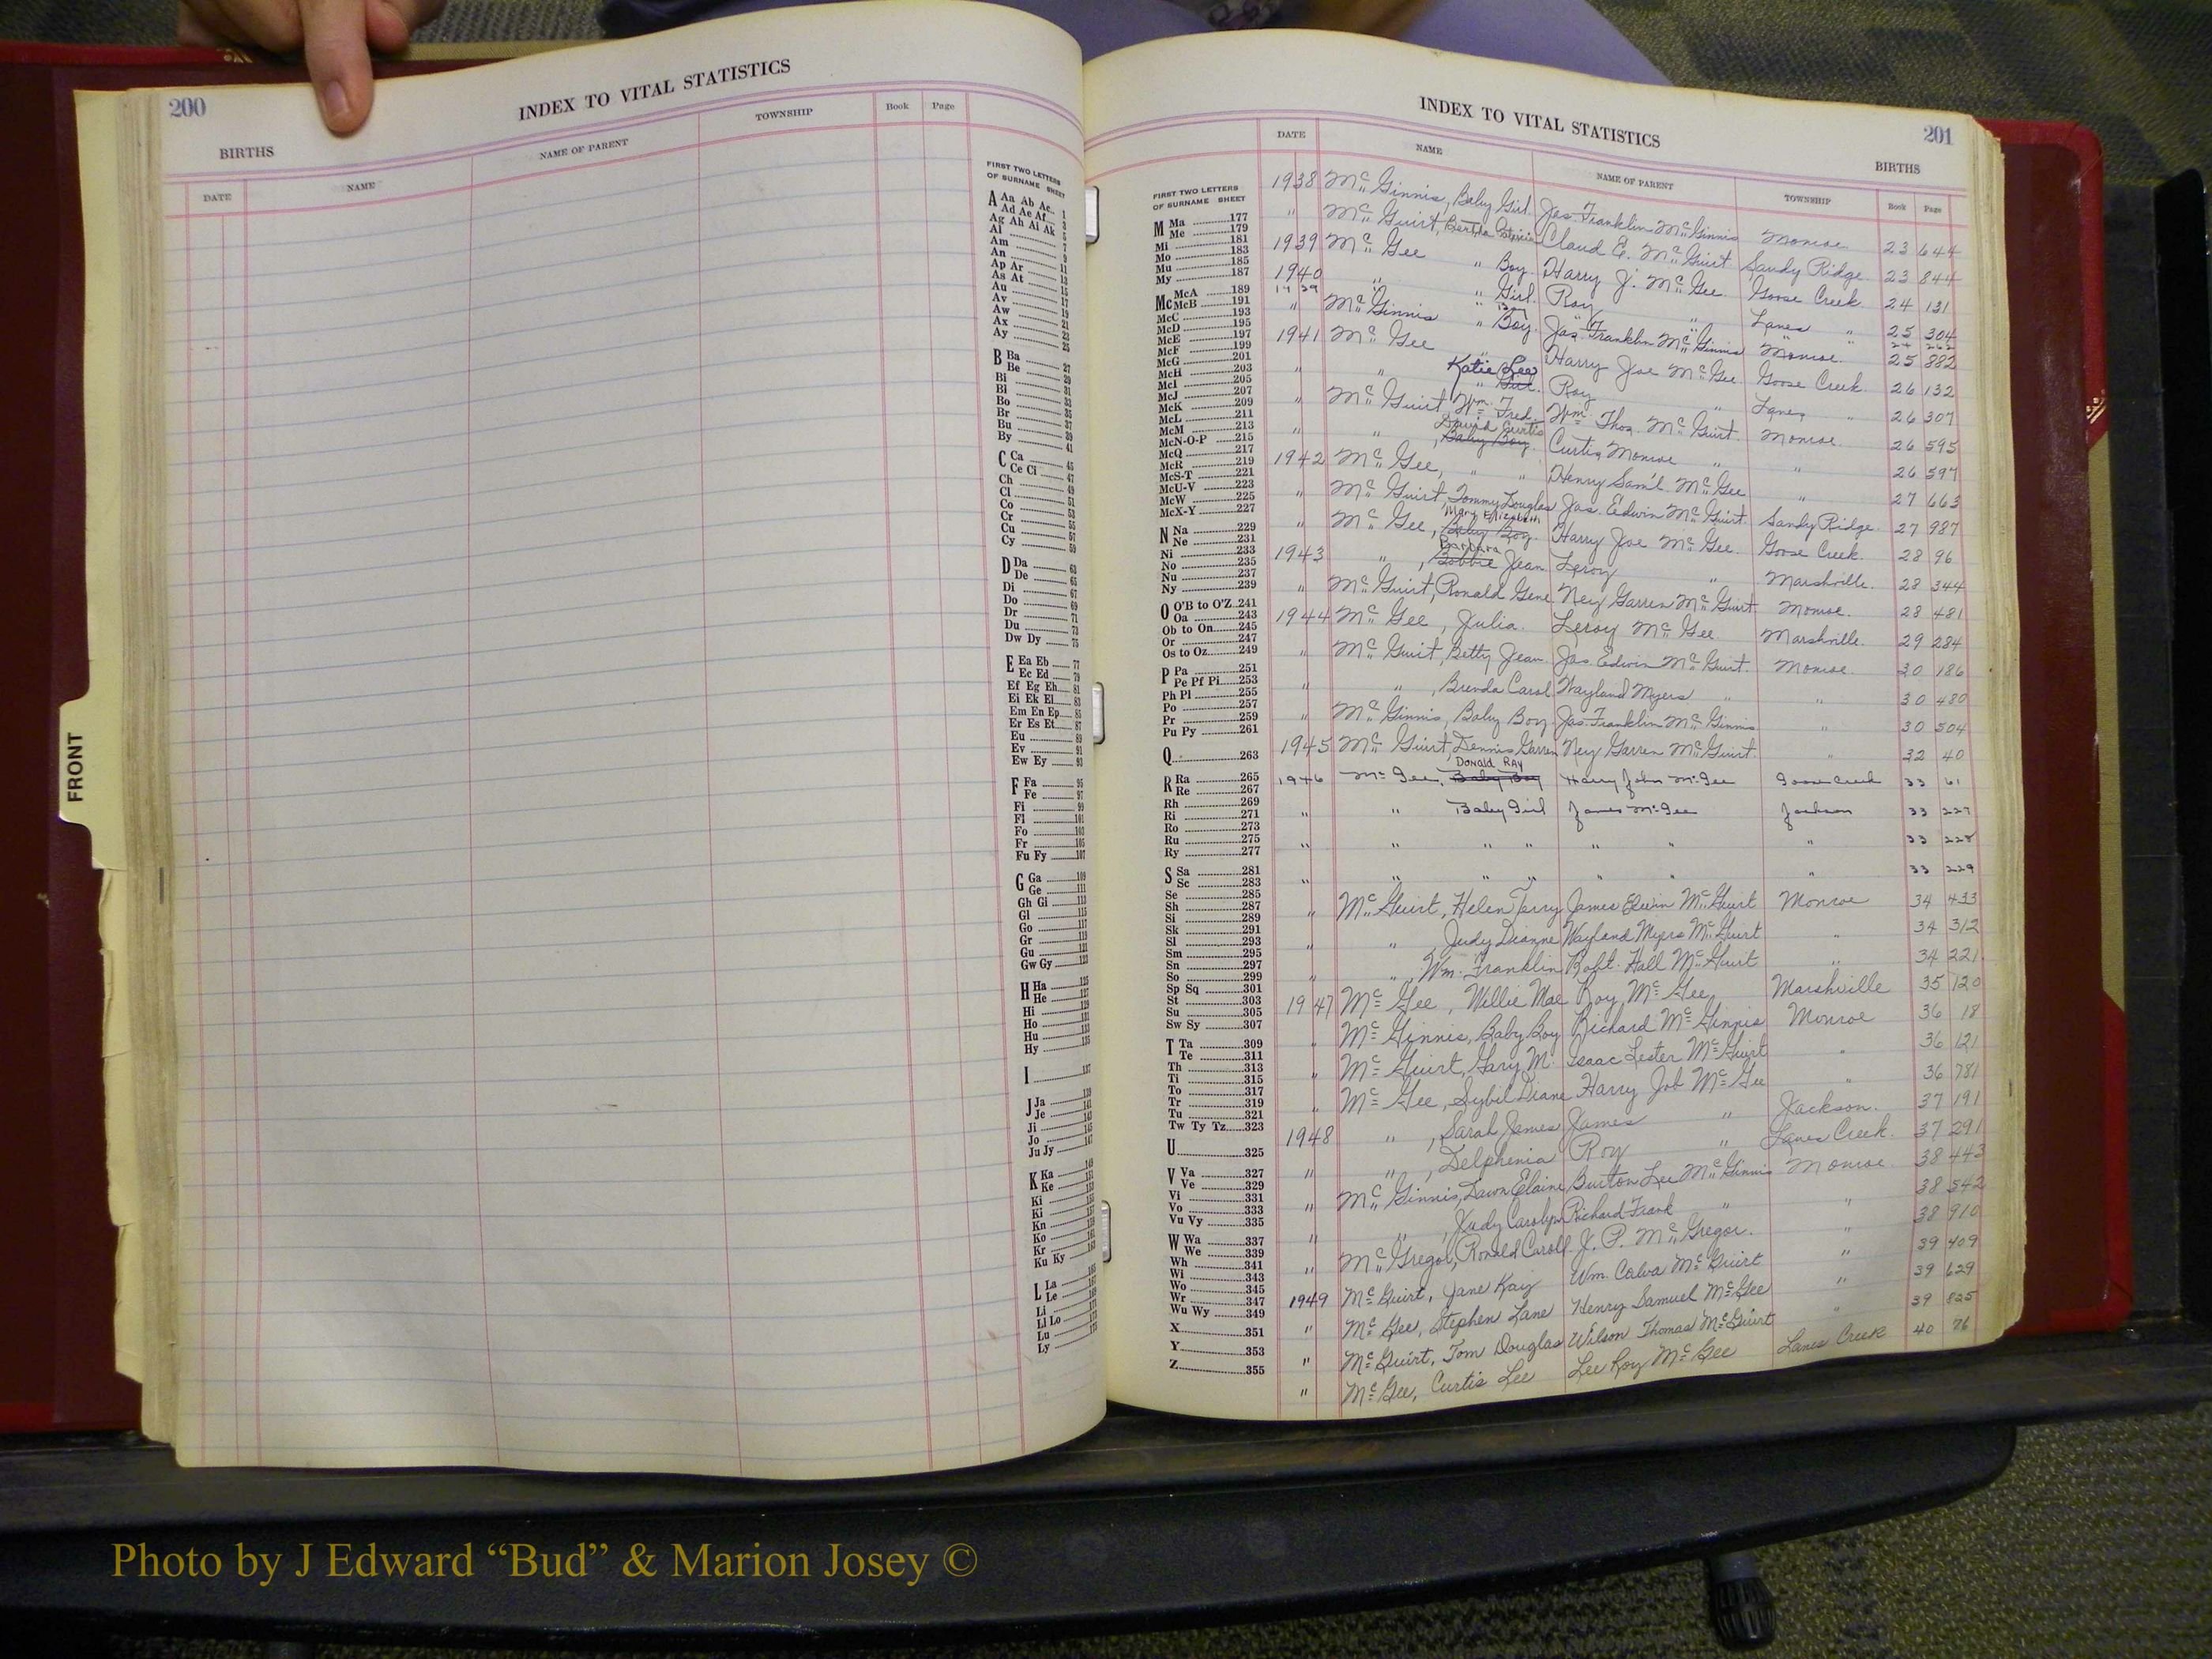 200
INDEX TO VITAL STATISTICS
BIRTHS
DATE NAME NAME OF PARENT TOWNSHIP Book Page
FIRST TWO LETTERS
OF SURNAME SHEET
A Aa Ab Ac 1
Ad Ae Af 3
Ag Ah Ai Ak 5
Al 7
An 9
Am
Ap Ar 11
As At 13
Au 15
Av 17
Aw 19
Ax 21
Ay 23
B Ba 27
Be
Bi
Bl 31
Bo 33
Br 35
Bu 37
By 39
C Ca 45
Ce Ci 47
Ch 49
Cl 51
Co 53
Cr 55
Cu 57
Cy 59
D Da 63
De 65
Di 67
Do 69
Dr 71
Du 73
Dw Dy 75
E Ea Eb 77
Ec Ed 79
Ef Eg Eh 81
Ei Ek El 83
Em En Ep 85
Er Es Et 87
Eu 89
Ev 91
Ew Ey 93
F Fa 95
Fe 97
Fi 99
Fl 101
Fo 103
Fr 105
Fu Fy 107
G Ga 109
Ge 111
Gh Gi 113
Gl 115
Go 117
Gr 119
Gu 121
Gw Gy 123
H Ha 125
He 127
Hi 129
Ho 131
Hu 133
Hy 135
I 137
J Ja 139
Je 141
Ji 143
Jo 145
Ju Jy 147
K Ka 149
Ke 151
Ki
Kl
Kn
Ko
Kr
Ku Ky
L La
Le
Li
Ll Lo
Lu
Ly
FRONT
INDEX TO VITAL STATISTICS
201
BIRTHS
DATE NAME NAME OF PARENT TOWNSHIP Book Page
FIRST TWO LETTERS
OF SURNAME SHEET
M Ma 177
Me 179
Mi 181
Mo 183
Mu 185
My 187
Mc McA 189
McB 191
McC 193
McD 195
McE 197
McF 199
McG 201
McH 203
McI 205
McJ 207
McK 209
McL 211
McM 213
McN-O-P 215
McQ 217
McR 219
McS-T 221
McU-V 223
McW 225
McX-Y 227
N Na 229
Ne 231
Ni 233
No 235
Nu 237
Ny 239
O O'B to O'Z 241
Oa 243
Ob to On 245
Or 247
Os to Oz 249
P Pa 251
Pe Pf Pi 253
Ph Pl 255
Po 257
Pr 259
Pu Py 261
Q 263
R Ra 265
Re 267
Rh 269
Ri 271
Ro 273
Ru 275
Ry 277
S Sa 281
Sc 283
Se 285
Sh 287
Si 289
Sk 291
Sl 293
Sm 295
Sn 297
So 299
Sp Sq 301
St 303
Su 305
Sw Sy 307
T Ta 309
Te 311
Th 313
Ti 315
To 317
Tr 319
Tu 321
Tw Ty Tz 323
U 325
V Va 327
Ve 329
Vi 331
Vo 333
Vu Vy 335
W Wa 337
We 339
Wh 341
Wi 343
Wo 345
Wr 347
Wu Wy 349
X 351
Y 353
Z 355
1938 McGinnis, Baby Girl Jas. Franklin McGinnis Monroe 23 644
" McGuirt, Bertha Claud E. McGuirt Sandy Ridge 23 844
1939 McGee " Boy Harry J. McGee Goose Creek 24 131
1940 " " Girl Roy " Lanes " 25 304
1939 " Boy " "
" McGinnis " Boy Jas. Franklin McGinnis Monroe 25 882
1941 McGee " Harry Joe McGee Goose Creek 26 132
Katie Lee
" " " Girl Roy " Lanes " 26 307
" McGuirt, Wm. Fred Wm. Thos. McGuirt Monroe 26 595
David Curtis
" " , Baby Boy Curtis Monroe " " 26 597
1942 McGee, " " Henry Sam'l McGee " 27 663
" McGuirt, Tommy Douglas Jas. Edwin McGuirt Sandy Ridge 27 987
Mary Elizabeth
" McGee, Baby Boy Harry Joe McGee Goose Creek 28 96
Barbara
1943 " , Bobbie Jean Leroy " Marshville 28 344
" McGuirt, Ronald Gene Ney Garren McGuirt Monroe 28 481
1944 McGee, Julia Leroy McGee Marshville 29 284
" McGuirt, Betty Jean Jas. Edwin McGuirt Monroe 30 186
" " , Brenda Carol Wayland Myers " " 30 480
" McGinnis, Baby Boy Jas. Franklin McGinnis " 30 504
1945 McGuirt, Dennis Garren Ney Garren McGuirt " 32 40
DONALD RAY
1946 McGee, Baby Boy Harry John McGee Goose Creek 33 61
" " Baby Girl James McGee Jackson 33 227
" " " " " " " 33 228
" " " " " " " 33 229
" McGuirt, Helen Terry James Elwin McGuirt Monroe 34 433
" " , Judy Dianne Wayland Myers McGuirt " 34 312
" " , Wm. Franklin Robt. Hall McGuirt " 34 221
1947 McGee, Willie Mae Roy McGee Marshville 35 120
" McGinnis, Baby Boy Richard McGinnis Monroe 36 18
" McGuirt, Gary M. Isaac Lester McGuirt " 36 121
" McGee, Sybil Diane Harry Job McGee " 36 781
1948 " , Sarah James James " Jackson 37 191
" " , Delphenia Roy " Lanes Creek 37 291
" McGinnis, Dawn Elaine Burton Lee McGinnis Monroe 38 443
" " , Judy Carolyn Richard Frank " " 38 542
" McGregor, Ronald Caroll J. P. McGregor " 38 910
1949 McGuirt, Jane Kay Wm. Calva McGuirt " 39 409
" McGee, Stephen Lane Henry Samuel McGee " 39 629
" McGuirt, Tom Douglas Wilson Thomas McGuirt " 39 825
" McGee, Curtis Lee Lee Roy McGee Lanes Creek 40 76
Photo by J Edward “Bud” & Marion Josey ©